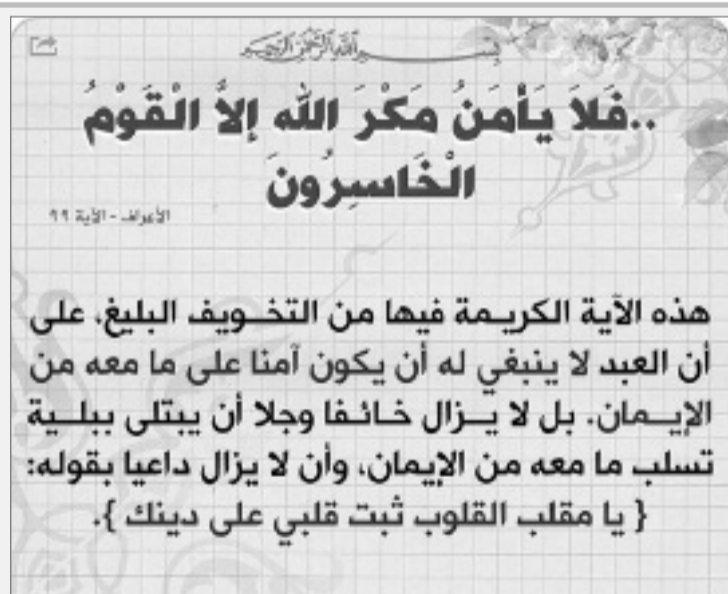 بسم الله الرحمن الرحيم
..فَلاَ يَأْمَنُ مَكْرَ اللّه إلاَّ الْقَوْمُ
الْخَاسِرُونَ
الأعراف - الآية ٩٩
هذه الآية الكريـمة فيها من التخـويف البليغ، على
أن العبد لا ينبغي له أن يكون آمنا على ما معه من
الإيـمان. بل لا يـزال خائفا وجلا أن يبتلى ببلـية
تسلب ما معه من الإيمان، وأن لا يزال داعيا بقوله:
{ يا مقلب القلوب ثبت قلبي على دينك }.